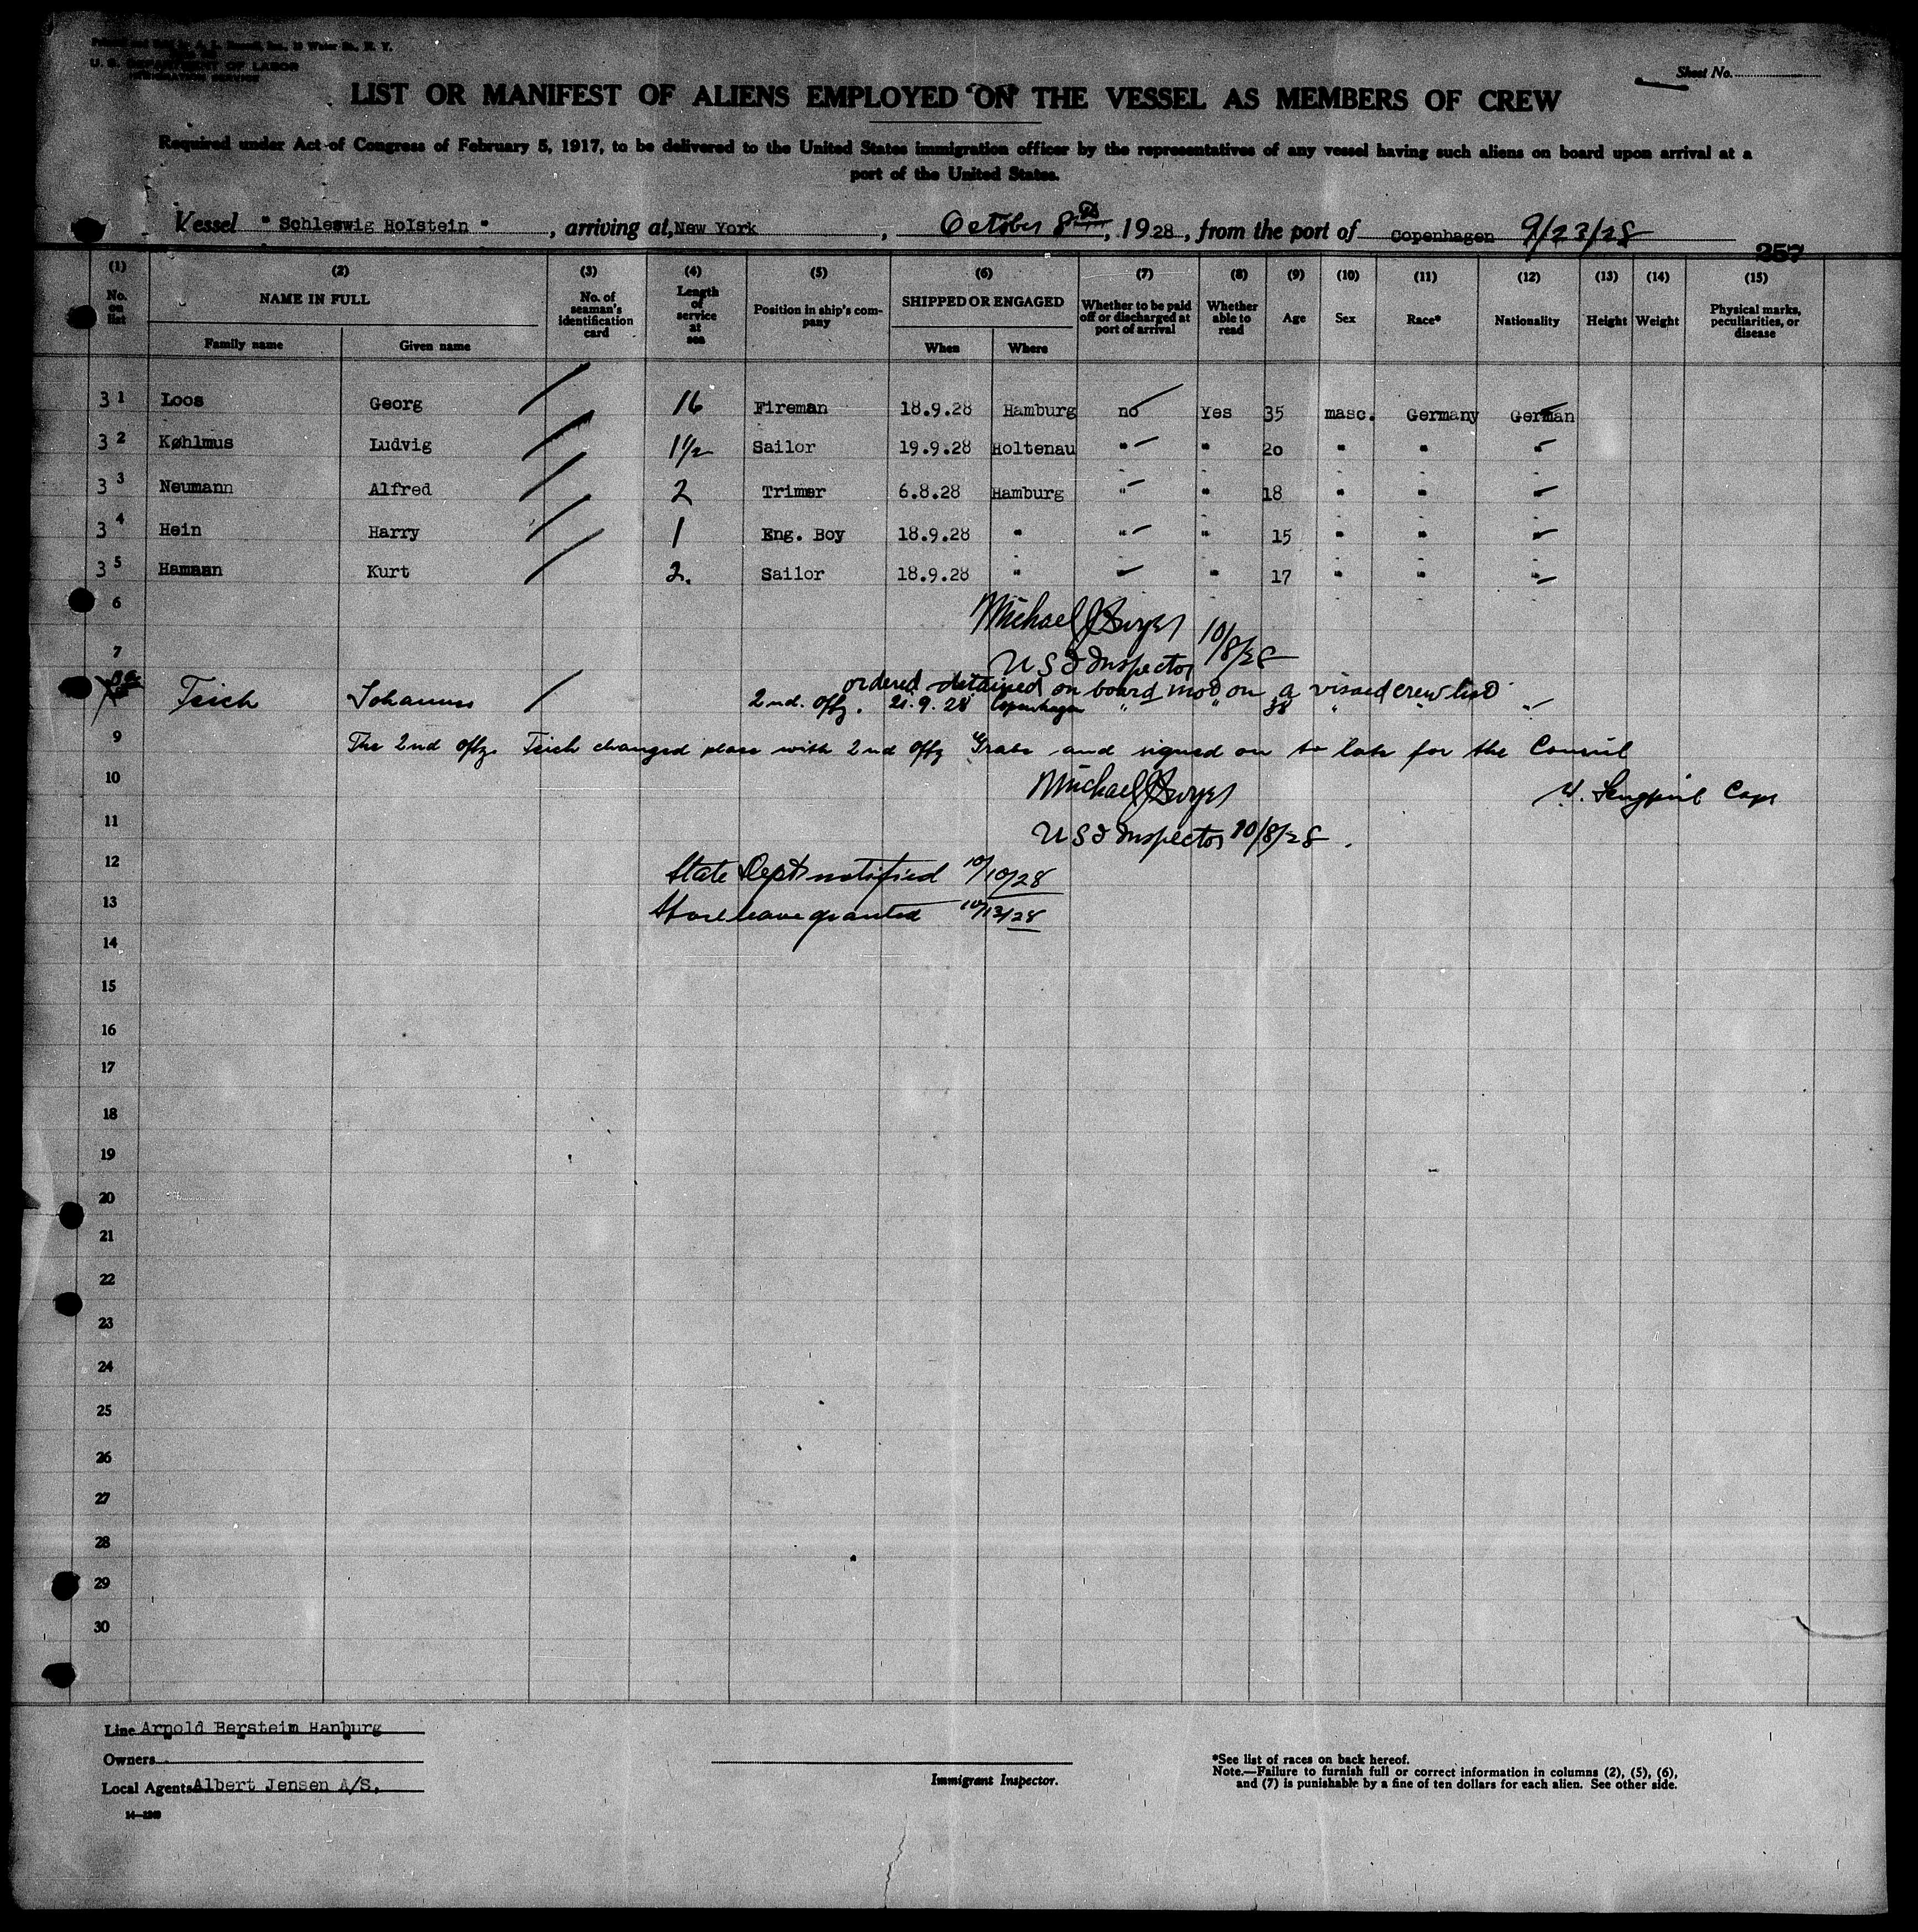 Printed and Sold by 19 Water St., N. Y.
U. S. DEPARTMENT OF LABOR
IMMIGRATION SERVICE
Sheet No.
LIST OR MANIFEST OF ALIENS EMPLOYED ON THE VESSEL AS MEMBERS OF CREW
Required under Act of Congress of February 5, 1917, to be delivered to the United States immigration officer by the representatives of any vessel having such aliens on board upon arrival at a
port of the United States.
Vessel " Schleswig Holstein ", arriving at, New York, October 8th, 1928, from the port of Copenhagen 9/23/28
357
(1) (2) (3) (4) (5) (6) (7) (8) (9) (10) (11) (12) (13) (14) (15)
No. on list NAME IN FULL Family name Given name No. of seaman's identification card Length of service at sea Position in ship's company SHIPPED OR ENGAGED When Where Whether to be paid off or discharged at port of arrival Whether able to read Age Sex Race* Nationality Height Weight Physical marks, peculiarities, or disease
31 Loos Georg 16 Fireman 18.9.28 Hamburg no Yes 35 masc. Germany German
32 Køhlmus Ludvig 1 1/2 Sailor 19.9.28 Holtenau " " 20 " " "
33 Neumann Alfred 2 Trimer 6.8.28 Hamburg " " 18 " " "
34 Hein Harry 1 Eng. Boy 18.9.28 " " " 15 " " "
35 Hamann Kurt 2. Sailor 18.9.28 " " " 17 " " "
6 Michael J
7 U S I Inspector 10/8/28
ordered detained on board not on a visaed crew list
Teich Johannes 2nd. Offz. 21.9.28 Copenhagen " " 38 " " "
9 The 2nd Offz. Teich changed place with 2nd Offz Grabe and signed on to late for the Consul
10 Michael J
Capt
11 U S I Inspector 10/8/28.
12 State Dept notified 10/10/28
13 Shore leave granted 10/13/28
14
15
16
17
18
19
20
21
22
23
24
25
26
27
28
29
30
Line Arnold Bersteim Hanburg
Owners
Local Agents Albert Jensen A/S.
14—1240
Immigrant Inspector.
*See list of races on back hereof.
Note.—Failure to furnish full or correct information in columns (2), (5), (6),
and (7) is punishable by a fine of ten dollars for each alien. See other side.